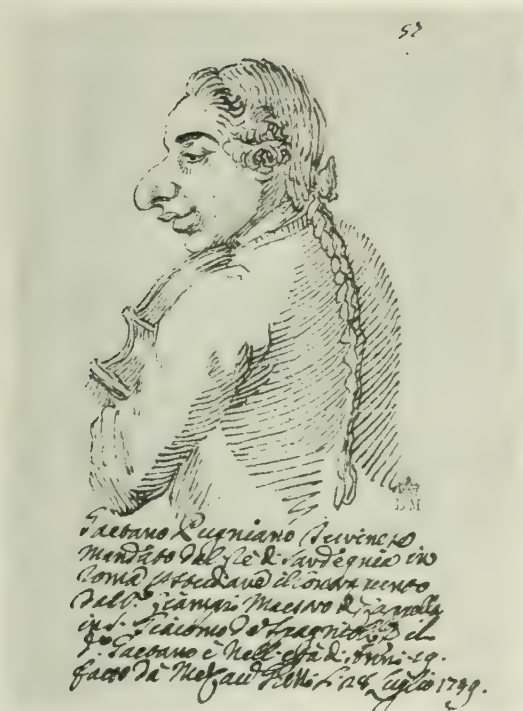 57
Gaetano Pugniani Turinese
mandato dal Rè di Sardegnia in
Roma studiare il contrapunto
dal Sig. Ciampi Maestro di Cappella
in S. Giacomo de Spagnioli, il
d. Gaetano è nell età di Anni 19.
fatto dà Me Cav. Ghezzi li 28 Luglio 1749.